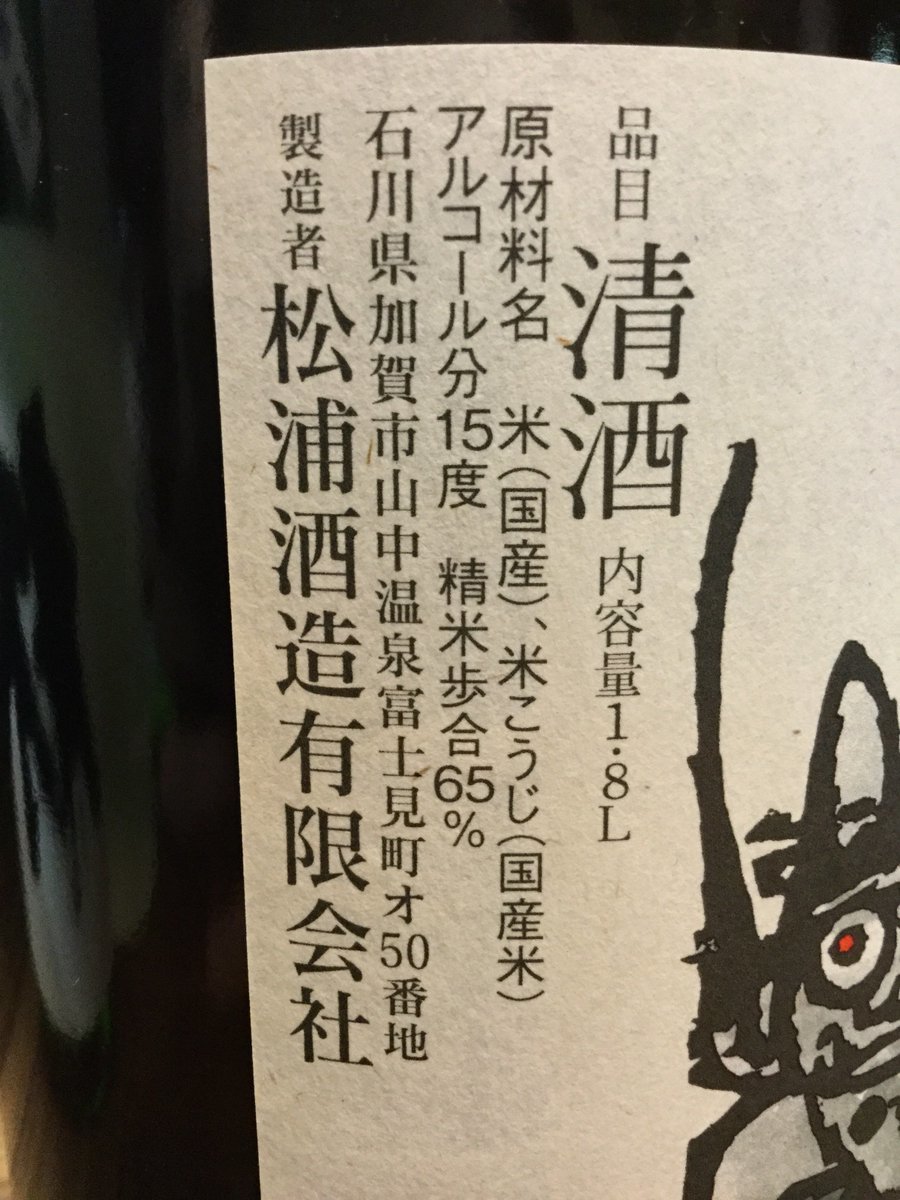 品目 清酒 内容量1.8L
原材料名 米(国産)、米こうじ(国産米)
アルコール分15度 精米歩合65%
石川県加賀市山中温泉富士見町オ50番地
製造者 松浦酒造有限会社